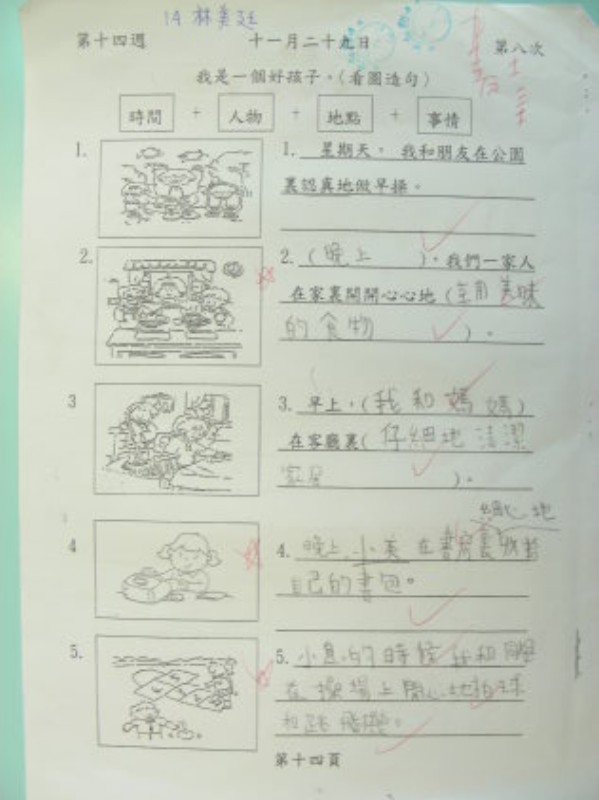 14 林美廷
第十四週 十一月二十九日 第八次
我是一個好孩子。(看圖造句)
時間 + 人物 + 地點 + 事情
1. 1. 星期天, 我和朋友在公園
裏認真地做早操。
2. 2. (晚上 ), 我們一家人
在家裏開開心心地(享用美味
的食物 )。
3 3. 早上,(我和媽媽)
在客廳裏( 仔細地 清潔
家居 )。
細心地
4 4. 晚上,小美在書房裏收拾
自己的書包。
5. 5. 小息的時候,我和同學
在操場上開心地拍球
和跳飛機。
第十四頁